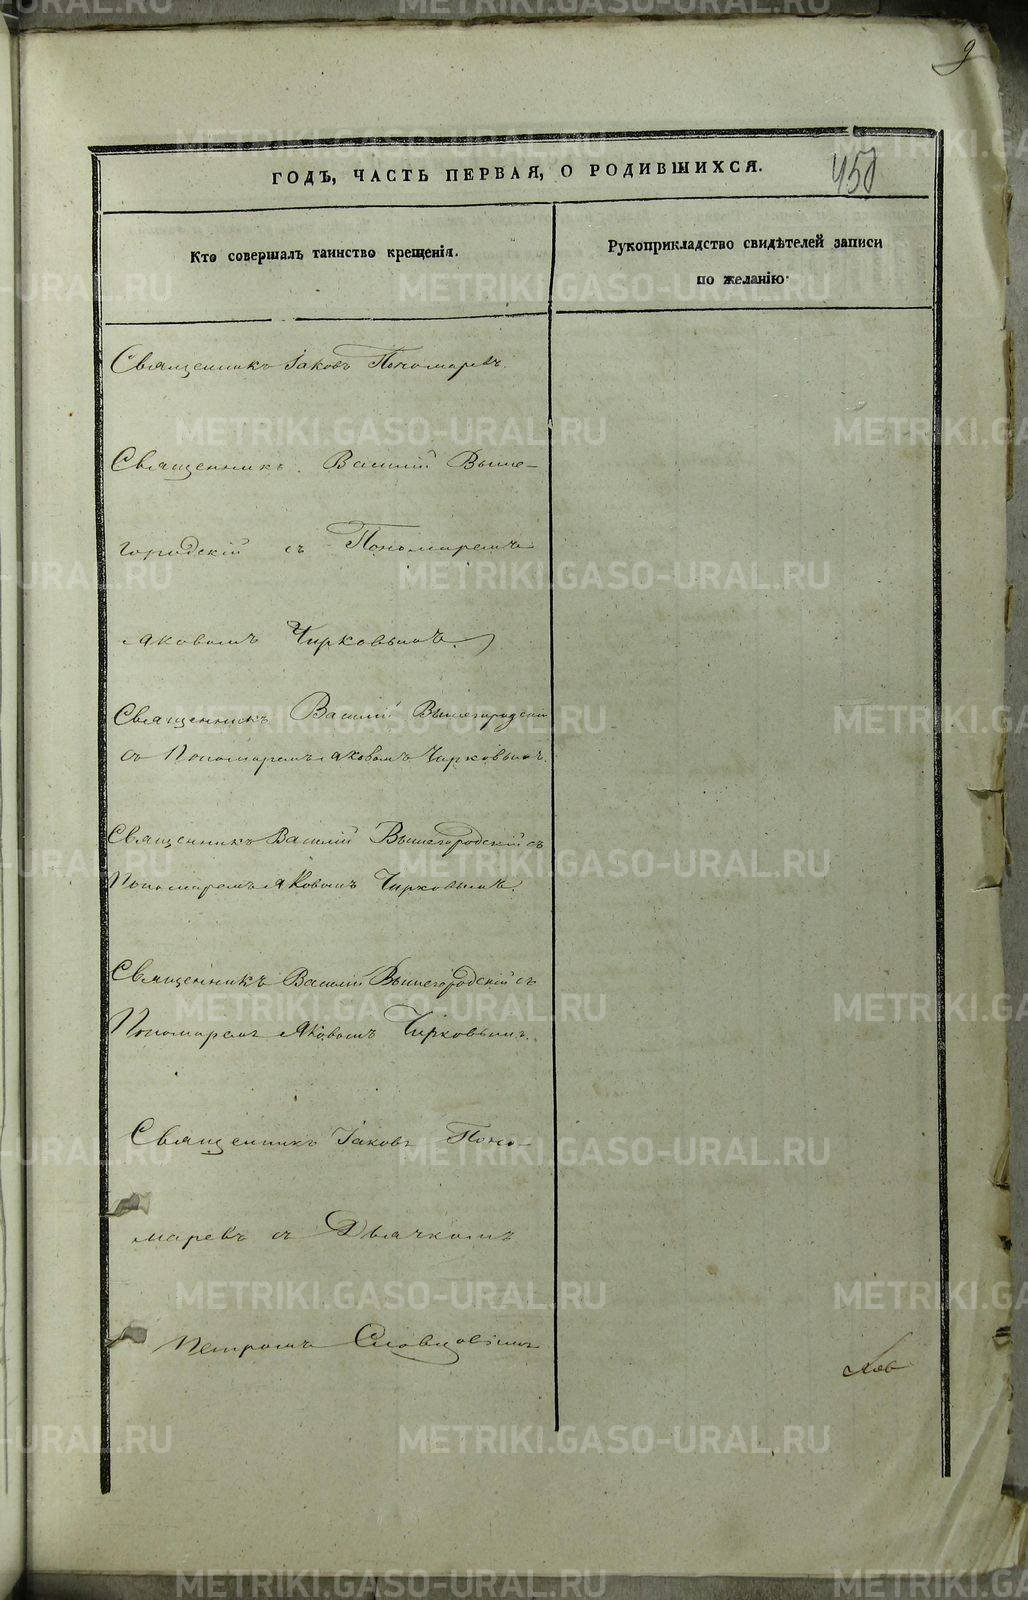 9
450
ГОДЪ, ЧАСТЬ ПЕРВАЯ, О РОДИВШИХСЯ.
Кто совершалъ таинство крещенія.
Рукоприкладство свидѣтелей записи
по желанію
Священникъ Іаковъ Пономаревъ.
Священникъ Василій Выше-
городскій съ Пономаремъ
Яковомъ Чирковымъ.
Священникъ Василій Вышегородскій
съ Пономаремъ Яковомъ Чирковымъ.
Священникъ Василій Вышегородскій съ
Пономаремъ Яковомъ Чирковымъ.
Священникъ Василій Вышегородскій съ
Пономаремъ Яковомъ Чирковымъ.
Священникъ Іаковъ Поно-
маревъ съ Дьячкомъ
Петромъ Словцовымъ
METRIKI.GASO-URAL.RU